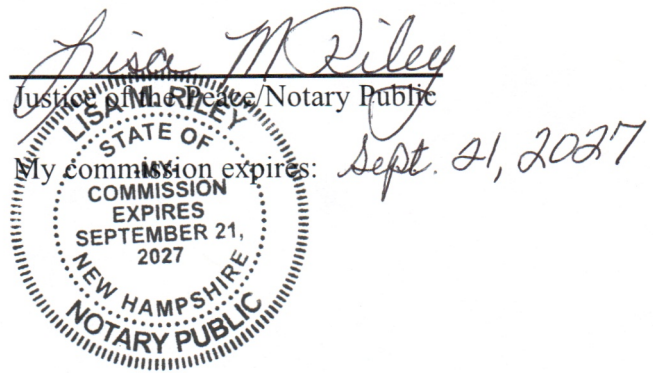 Lisa M Riley
Justice of the Peace/Notary Public
My commission expires: Sept. 21, 2027
LISA M. RILEY
STATE OF
-MY-
COMMISSION
EXPIRES
SEPTEMBER 21,
2027
NEW HAMPSHIRE
NOTARY PUBLIC